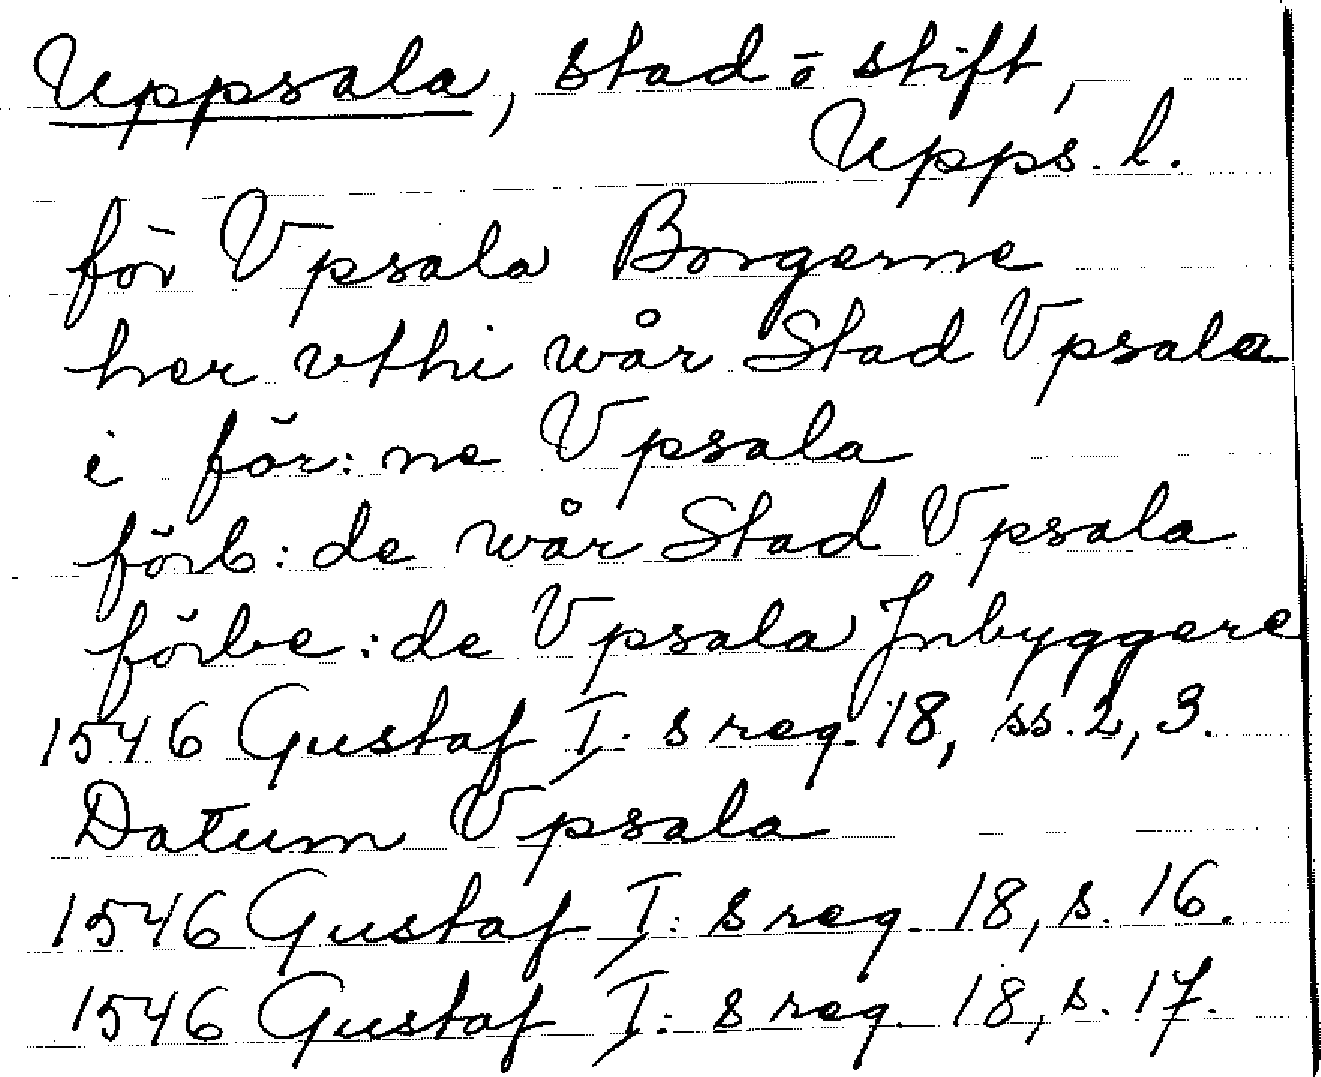 Uppsala, stad o stift,
Upps. l.
för Vpsala Borgerne
her vthi wår Stad Vpsala
i för: ne Vpsala
förb: de wår Stad Vpsala
förbe: de Vpsala Jnbyggere
1546 Gustaf I: s reg. 18, ss. 2, 3.
Datum Vpsala
1546 Gustaf I: s reg. 18, s. 16.
1546 Gustaf I: s reg. 18, s. 17.